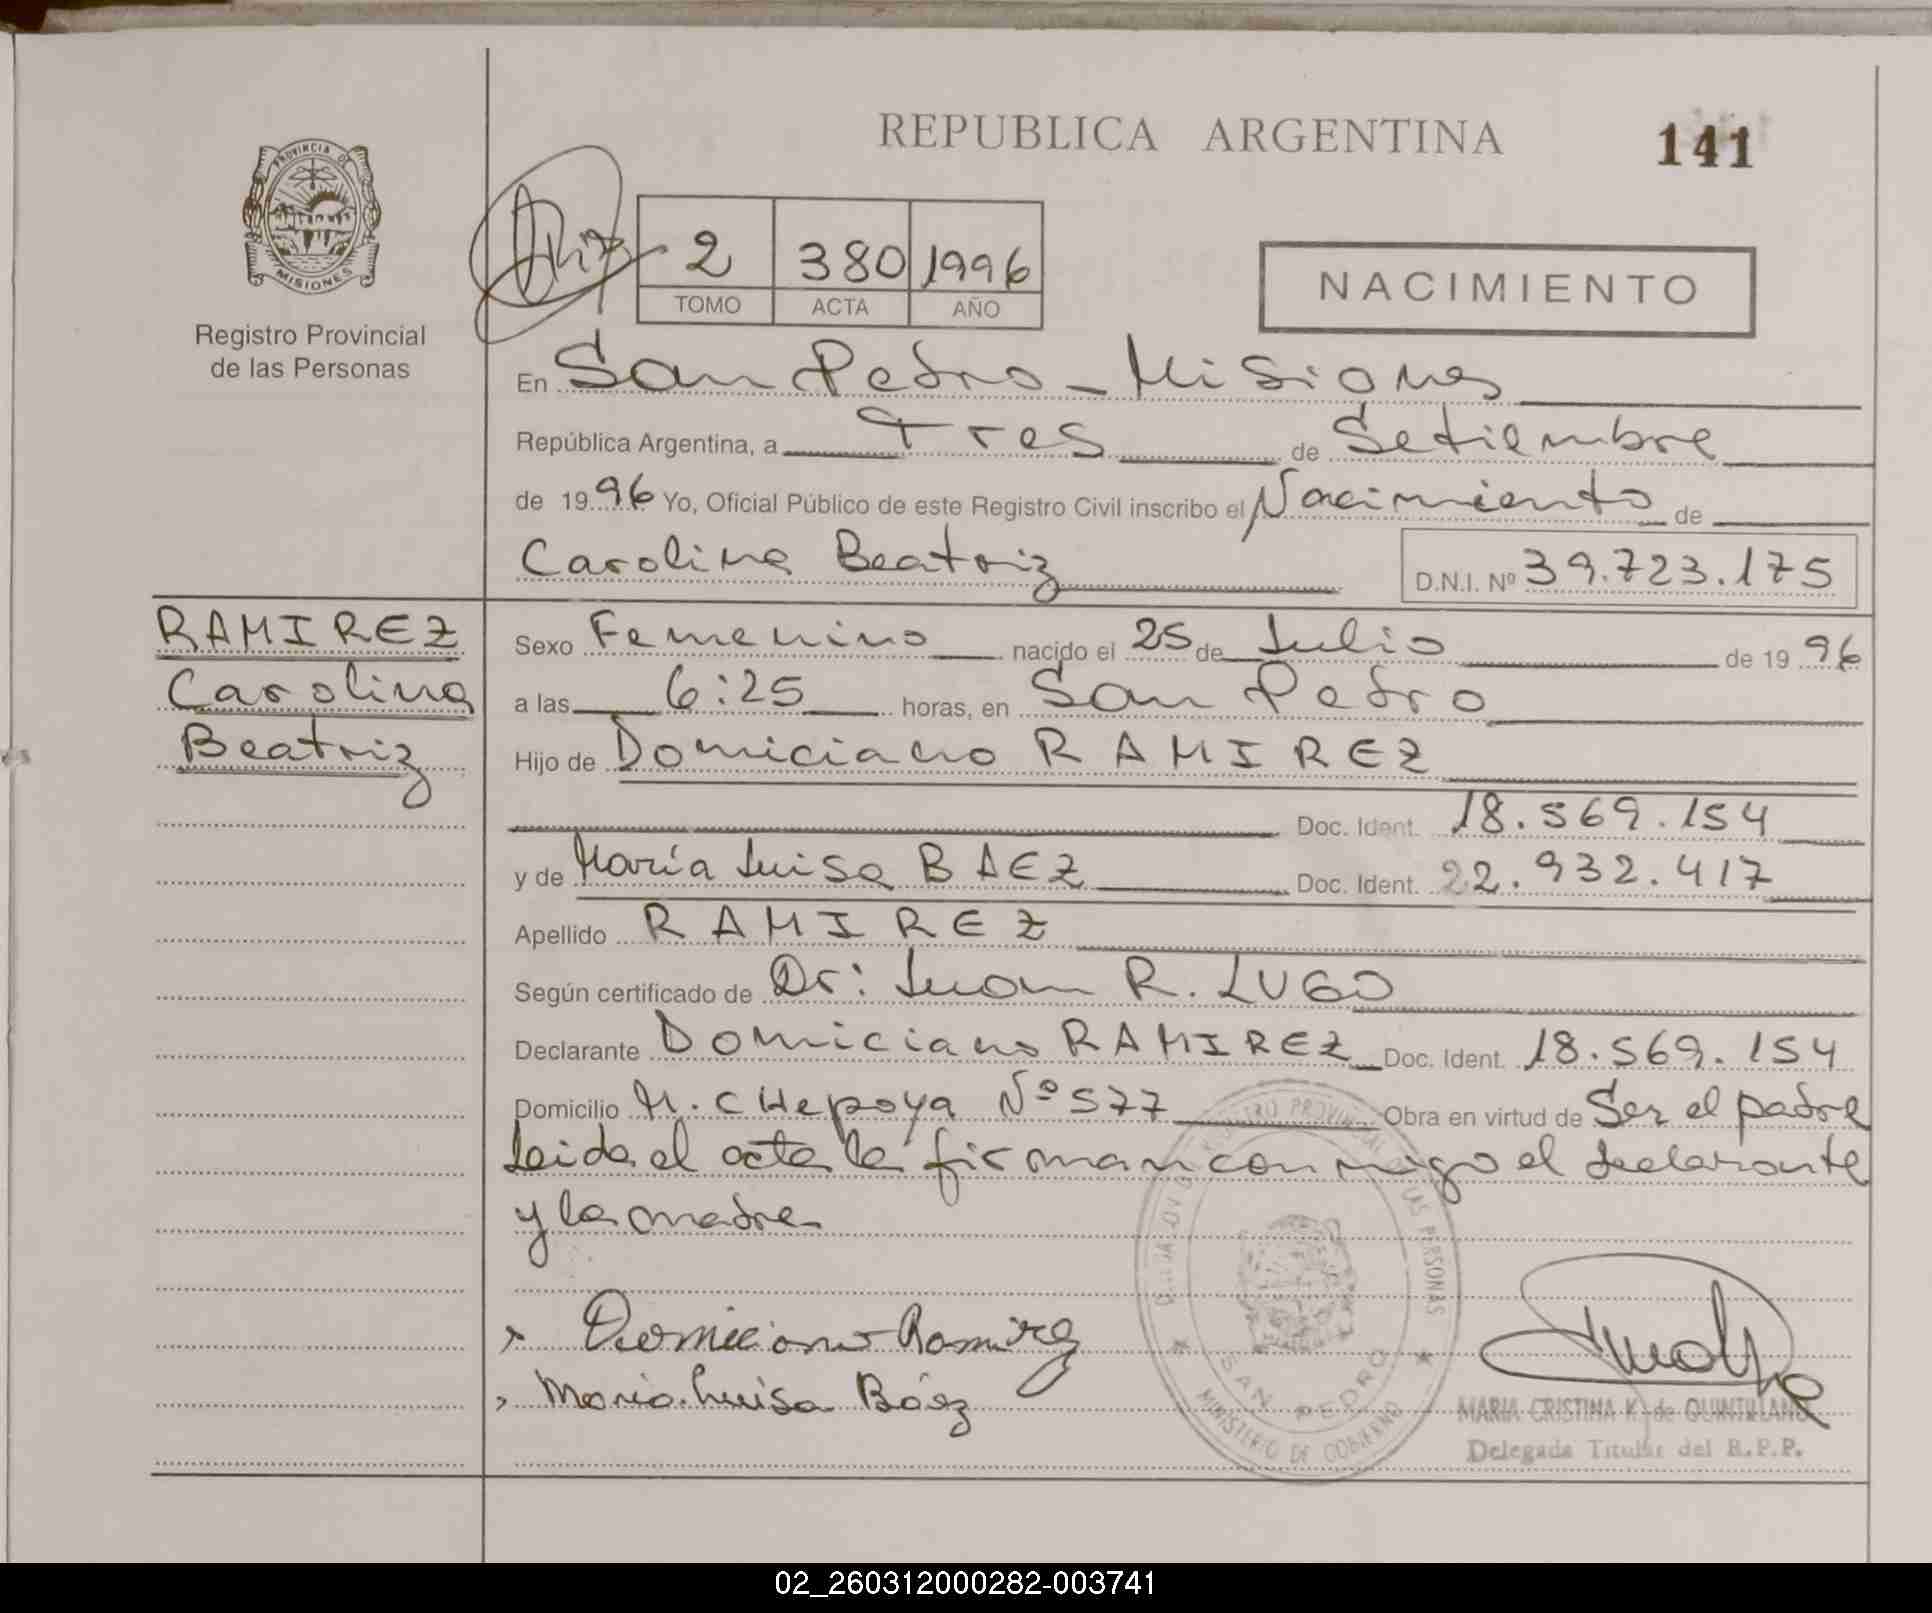 REPUBLICA ARGENTINA
141
PROVINCIA DE
MISIONES
Registro Provincial
de las Personas
2 380 1996
TOMO ACTA AÑO
NACIMIENTO
En San Pedro - Misiones
República Argentina, a Tres de Setiembre
de 1996 Yo, Oficial Público de este Registro Civil inscribo el Nacimiento de
Carolina Beatriz D.N.I. Nº 39.723.175
RAMIREZ
Carolina
Beatriz
Sexo Femenino nacido el 25 de Julio de 1996
a las 6:25 horas, en San Pedro
Hijo de Domiciano RAMIREZ
Doc. Ident. 18.569.154
y de María Luisa BAEZ Doc. Ident. 22.932.417
Apellido RAMIREZ
Según certificado de Dr: Juan R. LUGO
Declarante Domiciano RAMIREZ Doc. Ident. 18.569.154
Domicilio M. CHepoya Nº 577 Obra en virtud de Ser el padre
Leida el acta la firman conmigo el declarante
y la madre
Domiciano Ramirez
Maria Luisa Báez
REGISTRO PROVINCIAL DE LAS PERSONAS
SAN PEDRO
MINISTERIO DE GOBIERNO
MARIA CRISTINA K. de QUINTILLANO
Delegada Titular del R.P.P.
02_260312000282-003741